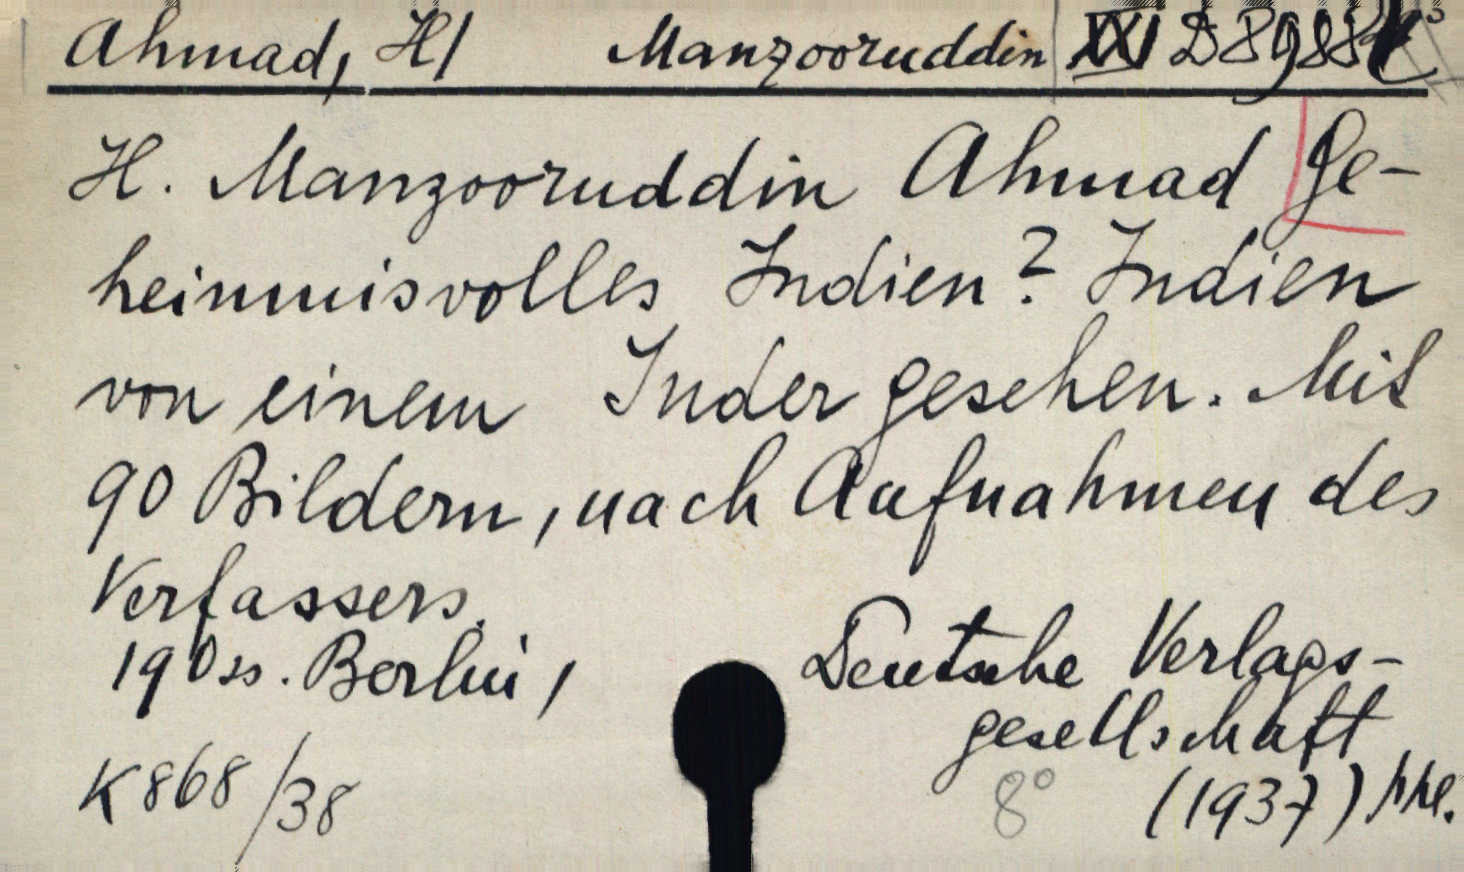 Ahmad, H/ Manzooruddin XXI D 8988
H. Manzooruddin Ahmad Ge-
heimnisvolles Indien? Indien
von einem Inder gesehen. Mit
90 Bildern, nach Aufnahmen des
Verfassers.
190 ss. Berlin, Deutsche Verlags-
gesellschaft
K 868/38 8° (1937)